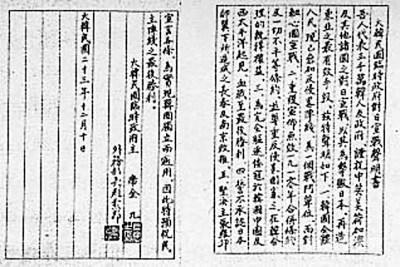 大韓民國臨時政府對日宣戰聲明書
吾人代表三千萬韓人及政府 謹祝中英美荷加澳
及其他諸國之對日宣戰，以其為擊敗日本，再造
東亞之最有效手段，茲特聲明如下，一，韓國全體
人民，現已參加反侵略陣線，為一個戰鬥單位，而對
軸心國宣戰，二，重復宣佈無效一九一〇年合併條約
及一切不平等條約，並尊重反侵略國家之在韓合
理的既得權益，三，為完全驅逐倭寇於韓國中國及
西太平洋起見，血戰至最後勝利，四，誓不承認日本
卵翼下所造成之長春及南京政權，五，堅決主張羅邱
宣言各條，為實現韓國獨立而適用，因此特預祝民
主陣線之最後勝利。
大韓民國臨時政府主 席金九
外務部長趙素卬
大韓民國二十三年十二月十日